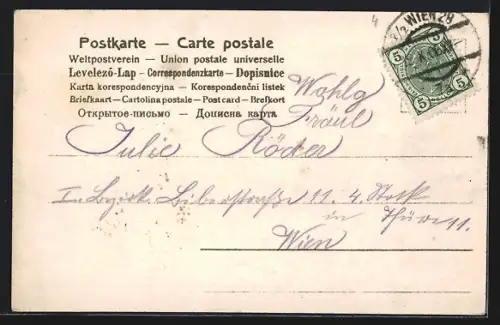 4
3/2 WIEN 28
5 5
5 5
Postkarte — Carte postale
Weltpostverein — Union postale universelle
Levelező-Lap — Correspondenzkarte — Dopisnice
Karta korespondencyjna — Korespondenční lístek
Briefkaart — Cartolina postale — Post card — Brefkort
Открытое-письмо — Дописна карта
Wohlg
Fräul
Julie Röder
I. Bezirk. Biberstraße 11. 4. Stock
in Thüre 11.
Wien